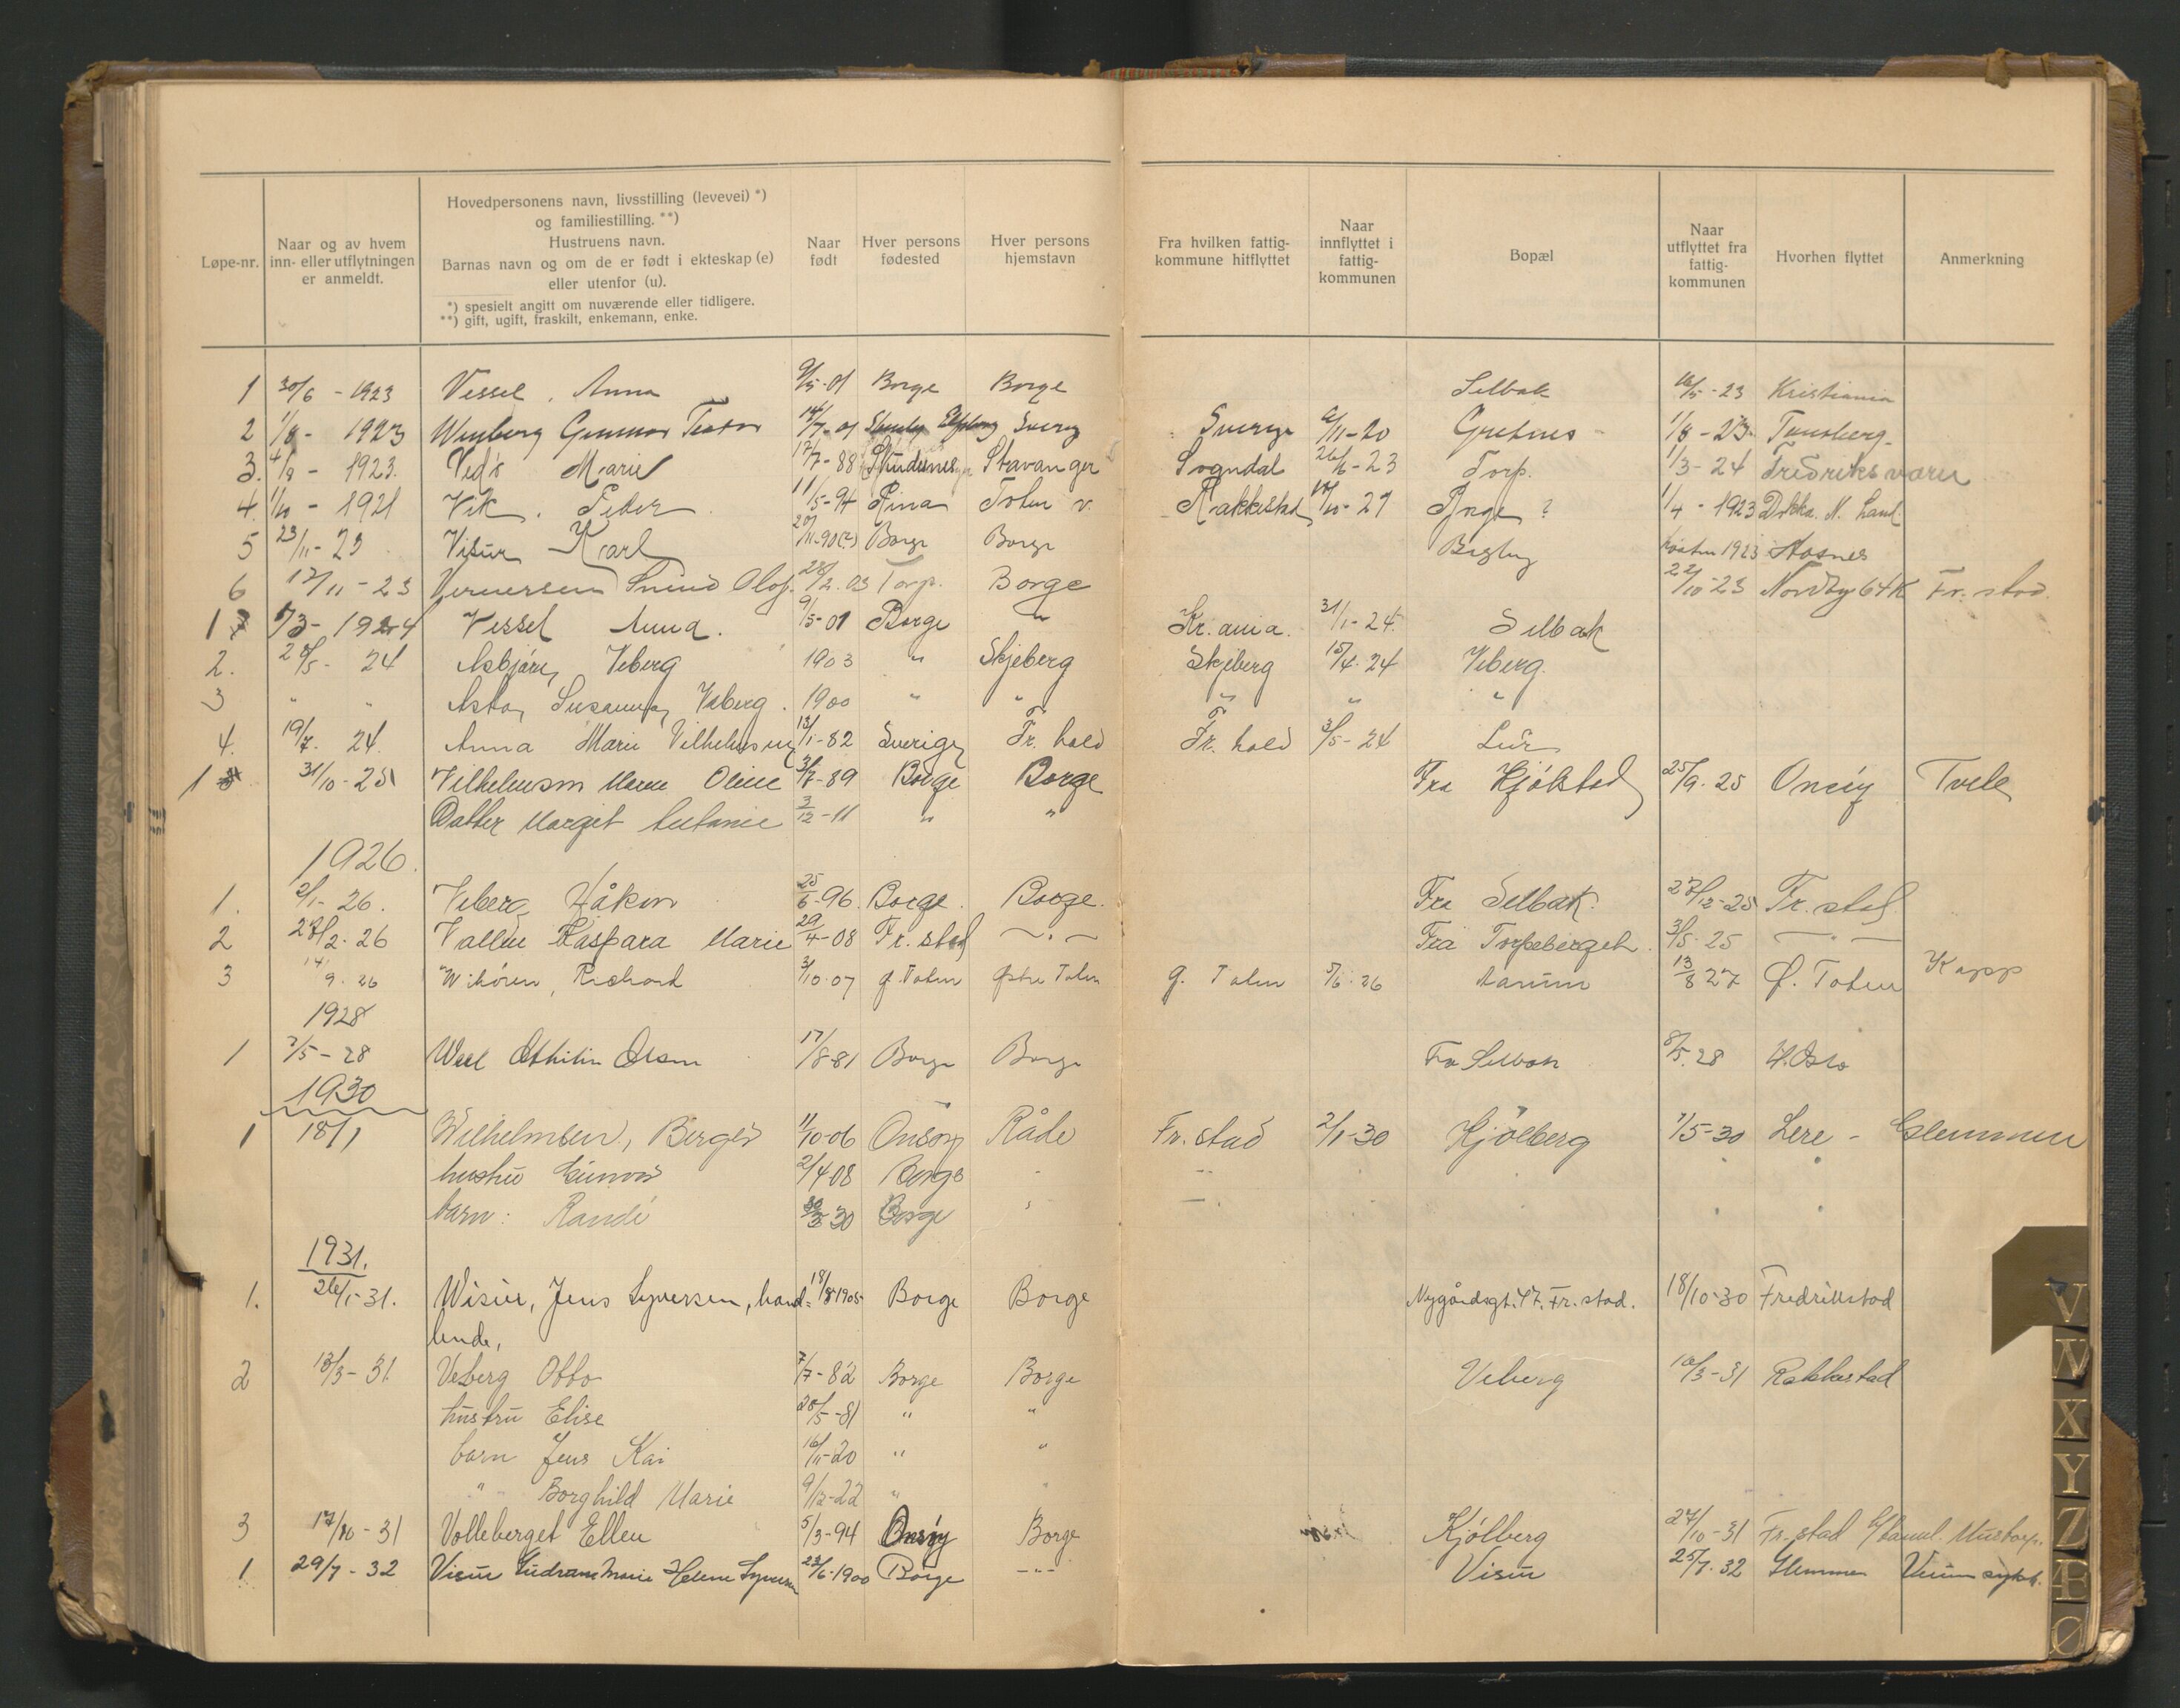 Løpe-nr. Naar og av hvem inn- eller utflytningen er anmeldt. Hovedpersonens navn, livsstilling (levevei) *) og familiestilling. **) Hustruens navn. Barnas navn og om de er født i ekteskap (e) eller utenfor (u). *) spesielt angitt om nuværende eller tidligere. **) gift, ugift, fraskilt, enkemann, enke. Naar født Hver persons fødested Hver persons hjemstavn Fra hvilken fattig-kommune hitflyttet Naar innflyttet i fattig-kommunen Bopæl Naar utflyttet fra fattig-kommunen Hvorhen flyttet Anmerkning
1 30/6 - 1923 Vessel, Anna 9/5-01 Borge Borge Selbak 16/5-23 Kristiania
2 1/8 - 1923 Gunnar 14/7-01 Sverig Sverige /11-20 Gretnes 1/8-23 Tønsberg
3. 4/8 - 1923. Marie 17/7-88 Skudenes Stavanger Sogndal 26/6-23 Torp. 1/3-24 Fredriksværn
4. 1/10 - 1921 Vik. Peder 11/5-94 Toten v. Rakkestad /10-21 Borge ? 1/4 - 1923 Dokka. N. Land
5 23/11-23 Visur Karl 20/11-90 Borge Borge Begby høsten 1923 Aasnes
6 17/11-23 Olof 28/2.03 Torp. Borge 22/10-23 Nordby 64K Fr. stad.
1 5/3-1924 Vessel Anna. 9/5-01 Borge " Kr.ania. 31/1-24. Selbak
2. 28/5 - 24 Asbjørn Veberg 1903 " Skjeberg Skjeberg 15/4-24 Veberg.
3 " " Asta Susanna Veberg. 1900 " " " " "
4. 19/7. 24. Anna Marie Vilhelmsen 13/1-82 Sverige Fr. hald Fr. hald 3/5-24 Lur
1 31/10-25 Vilhelmsen Maren Oline 3/7-89 Borge Borge Fra Kjølstad 25/9.25 Onsøy Tvete
Datter Margit 3/12-11 " "
1926.
1. 2/1-26. Veberg Håkon 25/6-96. Borge. Borge. Fra Selbak. 27/12-25 Fr. stad
2 27/2.26 Kaspara Marie 29/4-08 Fr. stad — " — Fra Torpeberget. 3/5.25 — " —
3 14/9.26 Richard 3/10.07 Ø. Toten Østre Toten Ø. Toten 5/6.26 Aarum 13/8 27 Ø. Toten Kapp
1928
1 7/5-28 Olsen 17/8-81 Borge Borge Fra Selbak 8/5.28 V. Oslo
1930
1 18/1 Wilhelmsen, Birger 11/10-06 Onsøy Råde Fr. stad 2/1-30 Kjølberg 1/5-30 Lere - Glemmen
hustru Gunvor 2/4 08 Borge
barn: Randi 30 Borge
1931.
1. 26/1-31. Wisur, Jens Syversen, hand= 18/8 1905 Borge Borge Nygårdsgt. 47, Fr. stad. 18/10-30 Fredrikstad
lende,
2 13/3-31 Veberg Otto 7/7-82 Borge Borge Veberg 10/3-31 Rakkestad
hustru Elise 28/5-81 " "
barn Jens Kai 16/11-20 " "
" Borghild Marie 9/12-22 " "
3 17/10-31 Volleberget Ellen 5/3-94 Onsøy Borge Kjølberg 27/10-31 Fr. stad
1 29/7-32 Visur Gudrun Marie Helene Syversen 23/6-1900 Borge -"- Visur 25/7.32 Glemmen
V
W
X
Y
Z
Æ
Ø